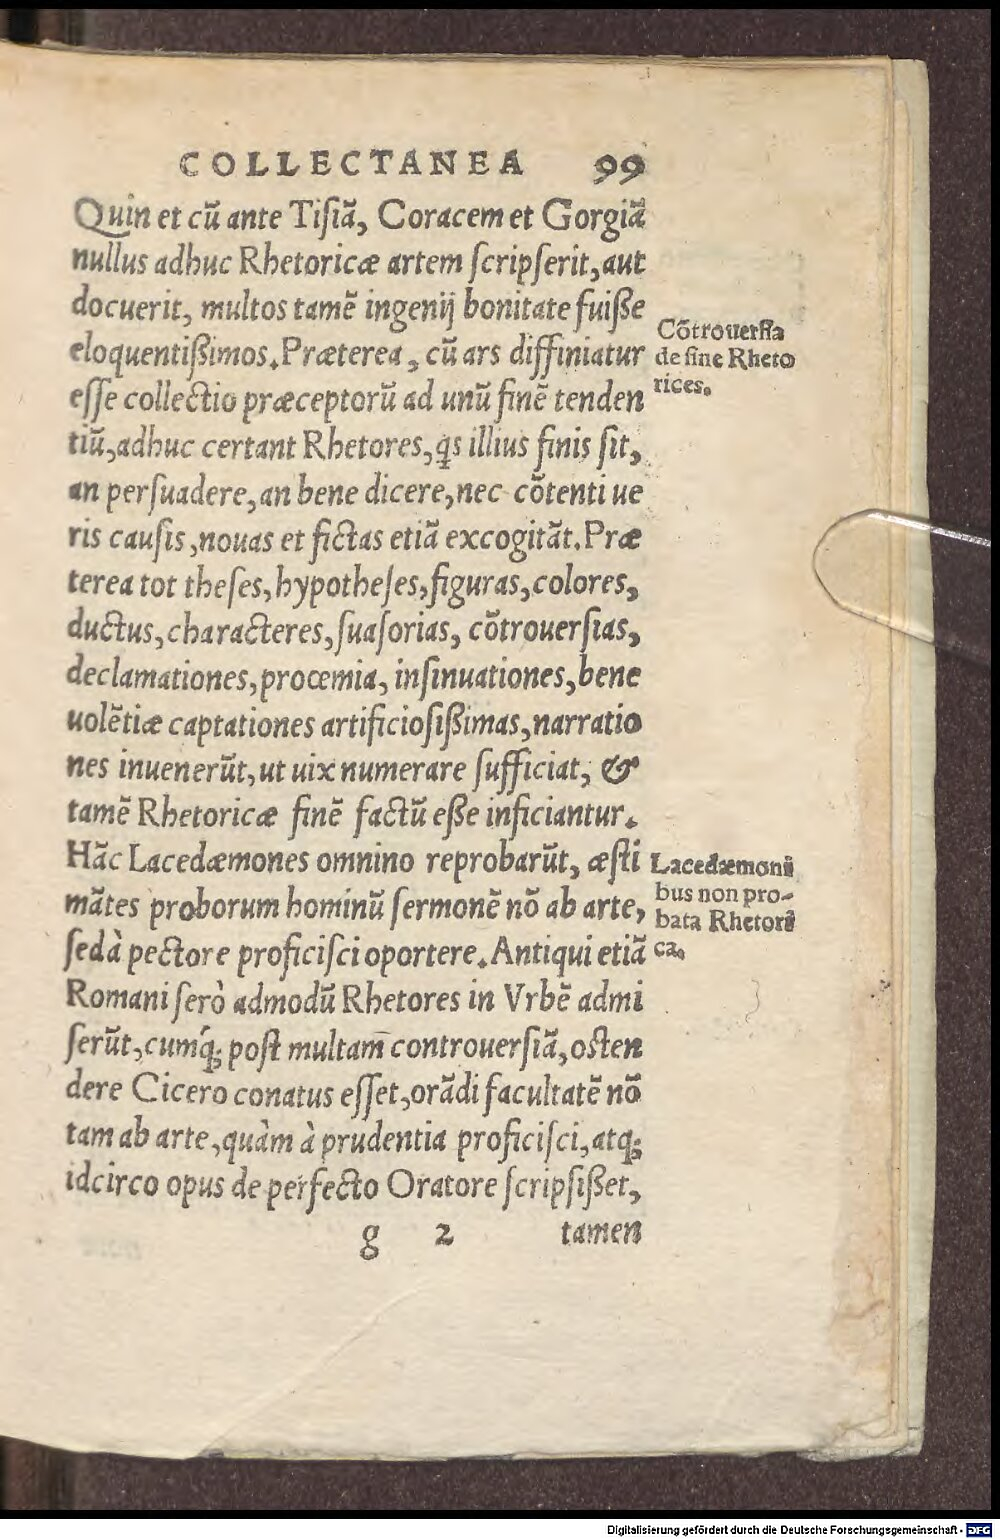 COLLECTANEA 99
Quin et cũ ante Tiſiã, Coracem et Gorgiã
nullus adhuc Rhetoricæ artem ſcripſerit, aut
docuerit, multos tamẽ ingenij bonitate fuiſſe
eloquentiſsimos. Præterea, cũ ars diffiniatur
eſſe collectio præceptorũ ad unũ finẽ tenden
tiũ, adhuc certant Rhetores, q̃s illius finis ſit,
an perſuadere, an bene dicere, nec cõtenti ue
ris cauſis, nouas et fictas etiã excogitãt. Præ
terea tot theſes, hypotheſes, figuras, colores,
ductus, characteres, ſuaſorias, cõtrouerſias,
declamationes, procemia, inſinuationes, bene
uolẽtiæ captationes artificioſiſsimas, narratio
nes inuenerũt, ut uix numerare ſufficiat, &
tamẽ Rhetoricæ finẽ factũ eſſe inficiantur.
Hãc Lacedæmones omnino reprobarũt, æſti
mãtes proborum hominũ ſermonẽ nõ ab arte,
ſed à pectore proficiſci oportere. Antiqui etiã
Romani ſerò admodũ Rhetores in Vrbẽ admi
ſerũt, cumq́; poſt multam controuerſiã, oſten
dere Cicero conatus eſſet, orãdi facultatẽ nõ
tam ab arte, quàm à prudentia proficiſci, atq;
idcirco opus de perfecto Oratore ſcripſiſſet,
g 2 tamen
Cõtrouerſia
de fine Rheto
rices.
Lacedæmonĩ
bus non pro-
bata Rhetori
ca.
Digitalisierung gefördert durch die Deutsche Forschungsgemeinschaft - DFG